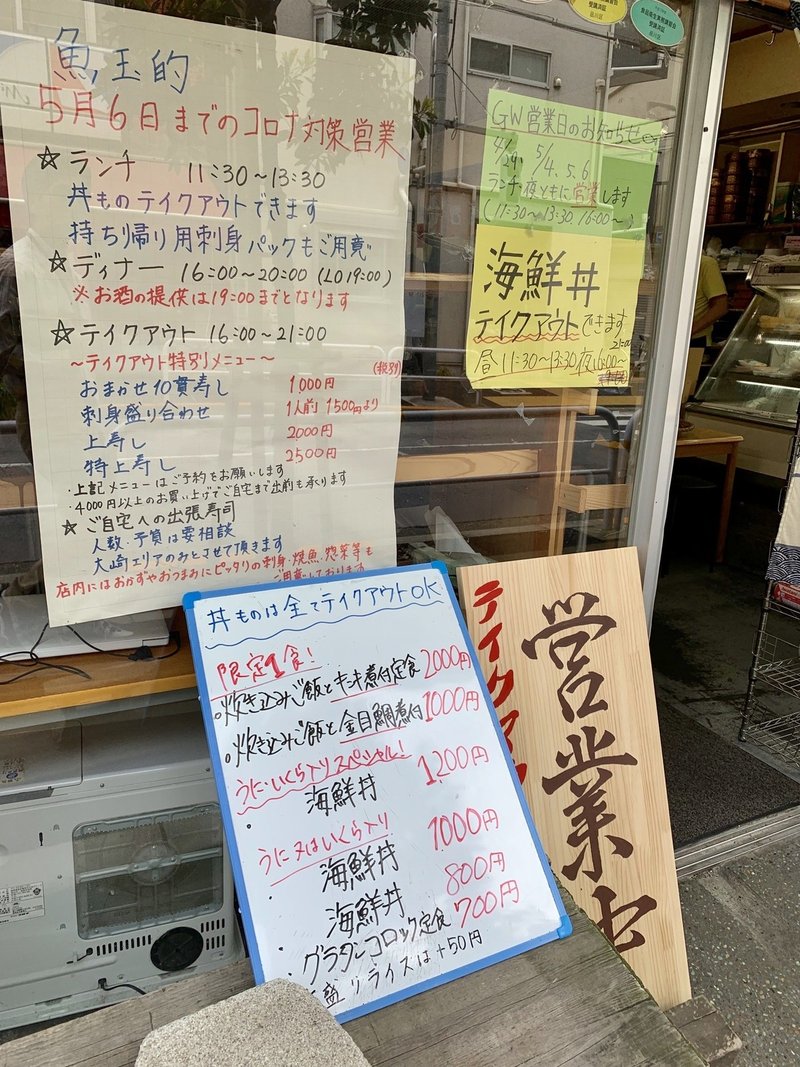 魚玉的
5月6日までのコロナ対策営業
☆ランチ 11:30〜13:30
丼ものテイクアウトできます
持ち帰り用刺身パックもご用意
☆ディナー 16:00〜20:00 (LO19:00)
※お酒の提供は19:00までとなります
☆テイクアウト 16:00〜21:00
〜テイクアウト特別メニュー〜 (税別)
おまかせ10貫寿し 1000円
刺身盛り合わせ 1人前 1500円より
上寿し 2000円
特上寿し 2500円
・上記メニューはご予約をお願いします
・4000円以上のお買い上げでご自宅まで出前も承ります
☆ご自宅への出張寿司
人数・予算は要相談
大崎エリアのみとさせて頂きます
店内にはおかずやおつまみにピッタリの刺身・焼魚・惣菜等も
ご用意しております
GW営業日のお知らせ
4/29. 5/4. 5. 6
ランチ・夜ともに営業します
(11:30〜13:30 16:00〜)
海鮮丼
テイクアウトできます
昼11:30〜13:30 夜16:00〜
21:00
丼ものは全てテイクアウトOK
限定1食!
・炊き込みご飯とキンキ煮付定食 2000円
・炊き込みご飯と金目鯛煮付 1000円
うに・いくら入りスペシャル!
・海鮮丼 1,200円
うに又はいくら入り
・海鮮丼 1000円
・海鮮丼 800円
・グラタンコロッケ定食 700円
盛りライスは+50円
テイクアウ
営業